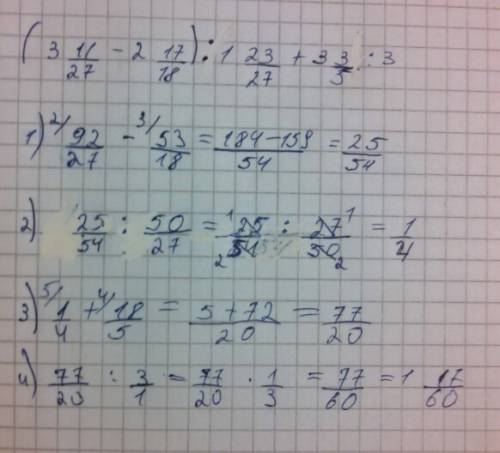 (3 11/27 - 2 17/18) : 1 23/27 + 3 3/5 : 3
1) 2/ 92/27 - 3/ 53/18 = 184-159/54 = 25/54
2) 25/54 : 50/27 = 1 25/54 2 : 27 1/50 2 = 1/4
3) 5/ 1/4 + 4/ 18/5 = 5+72/20 = 77/20
4) 77/20 : 3/1 = 77/20 · 1/3 = 77/60 = 1 17/60